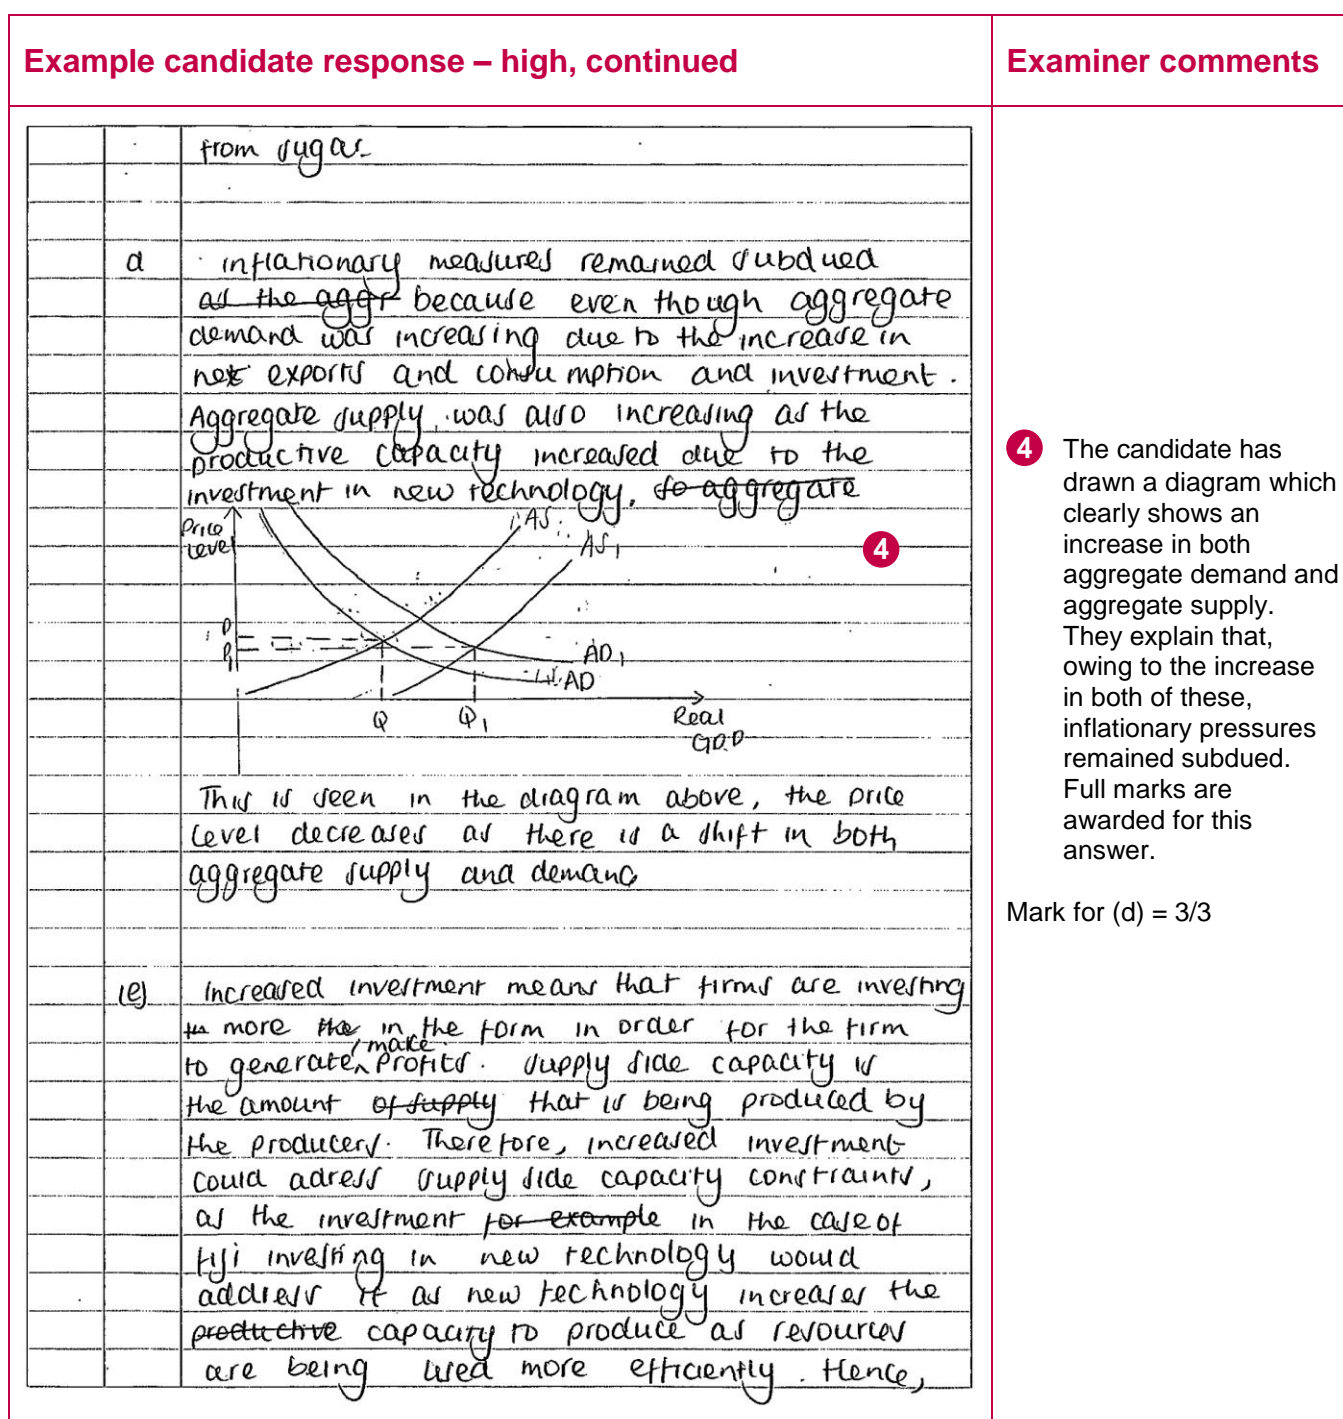 Example candidate response – high, continued
Examiner comments
from sugar
d
inflationary measures remained subdued
as the aggr because even though aggregate
demand was increasing due to the increase in
net exports and consumption and investment.
Aggregate supply was also increasing as the
productive capacity increased due to the
investment in new technology. So aggregate
Price
Level
AS
AS1
4
P
P1
AD1
AD
Q
Q1
Real
GDP
This is seen in the diagram above, the price
level decreases as there is a shift in both
aggregate supply and demand
(e)
Increased investment means that firms are investing
more the in the form in order for the firm
to generate make profits. Supply side capacity is
the amount of supply that is being produced by
the producers. Therefore, increased investment
could adress supply side capacity constraints,
as the investment for example in the case of
Fiji investing in new technology would
address it as new technology increases the
productive capacity to produce as resources
are being used more efficiently. Hence,
4 The candidate has
drawn a diagram which
clearly shows an
increase in both
aggregate demand and
aggregate supply.
They explain that,
owing to the increase
in both of these,
inflationary pressures
remained subdued.
Full marks are
awarded for this
answer.
Mark for (d) = 3/3